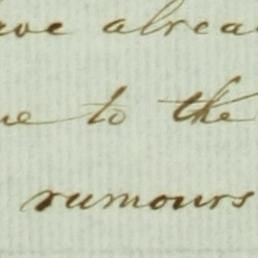 have alrea
me to the
rumours